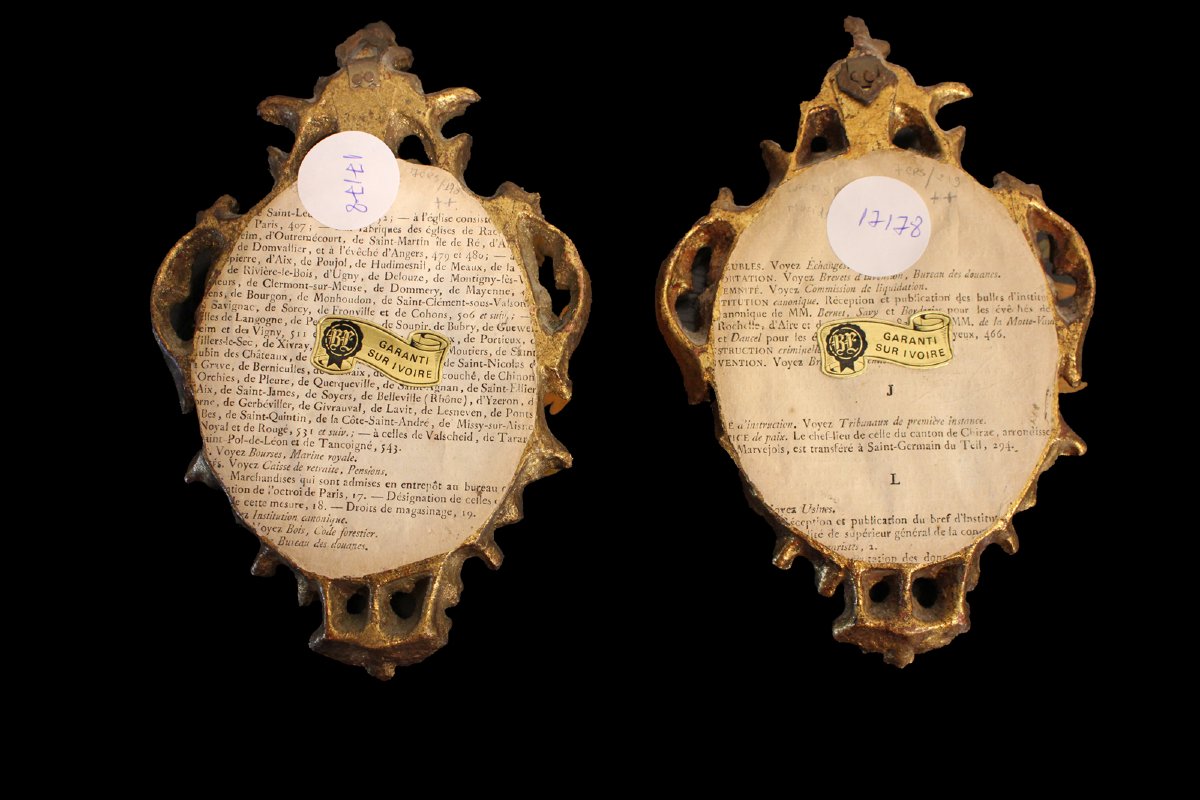 17178
e Saint-Leu
32; — à l'église consisto
Paris, 407; — fabriques des églises de Rac
eim, d'Outremécourt, de Saint-Martin île de Ré, d'A
de Domvallier, et à l'évêché d'Angers, 479 et 480; —
epierre, d'Aix, de Poujol, de Hudimesnil, de Meaux, de la
de Rivière-le-Bois, d'Ugny, de Delouze, de Montigny-lès-
eurs, de Clermont-sur-Meuse, de Dommery, de Mayenne,
ens, de Bourgon, de Monhoudon, de Saint-Clément-sous-Valson
Savignac, de Sorcy, de Fronville et de Cohons, 506 et suiv.; —
lles de Langogne, de Pe de Soupir, de Bubry, de Guewe
eim et des Vigny, 511 x, de Portieux,
illers-le-Sec, de Xivray Moutiers, de Saint
ubin des Châteaux, de de Saint-Nicolas
Grave, de Bernieulles, de couché, de Chinon
Orchies, de Pleure, de Querqueville, de Saint-Agnan, de Saint-Ellier
Aix, de Saint-James, de Soyers, de Belleville (Rhône), d'Yzeron, d
orne, de Gerbéviller, de Givrauval, de Lavit, de Lesneven, de Ponts
Bes, de Saint-Quintin, de la Côte-Saint-André, de Missy-sur-Aisne
Noyal et de Rougé, 531 et suiv.; — à celles de Valscheid, de Tarar
aint-Pol-de-Léon et de Tancoigné, 543.
Voyez Bourses, Marine royale.
ES. Voyez Caisse de retraite, Pensions.
Marchandises qui sont admises en entrepôt au bureau
ation de l'octroi de Paris, 17. — Désignation de celles
e cette mesure, 18. — Droits de magasinage, 19.
ez Institution canonique.
Voyez Bois, Code forestier.
Bureau des douanes.
BF
GARANTI
SUR IVOIRE
++
17178
++
EUBLES. Voyez Echanges.
ORTATION. Voyez Brevets d'invention, Bureau des douanes.
EMNITÉ. Voyez Commission de liquidation.
TITUTION canonique. Réception et publication des bulles d'institu
anonique de MM. Bernet, Savy et pour les évêchés de
Rochelle, d'Aire et MM. de la Motte-Vau
et Dancel pour les é yeux, 466.
STRUCTION criminelle
VENTION. Voyez Br
J
E d'instruction. Voyez Tribunaux de première instance.
ICE de paix. Le chef-lieu de celle du canton de Chirac, arrondisse
Marvejois, est transféré à Saint-Germain du Teil, 294.
L
Voyez Usines.
Réception et publication du bref d'Institut
lité de supérieur général de la cong
aristes, 2.
tation des dons
BF
GARANTI
SUR IVOIRE